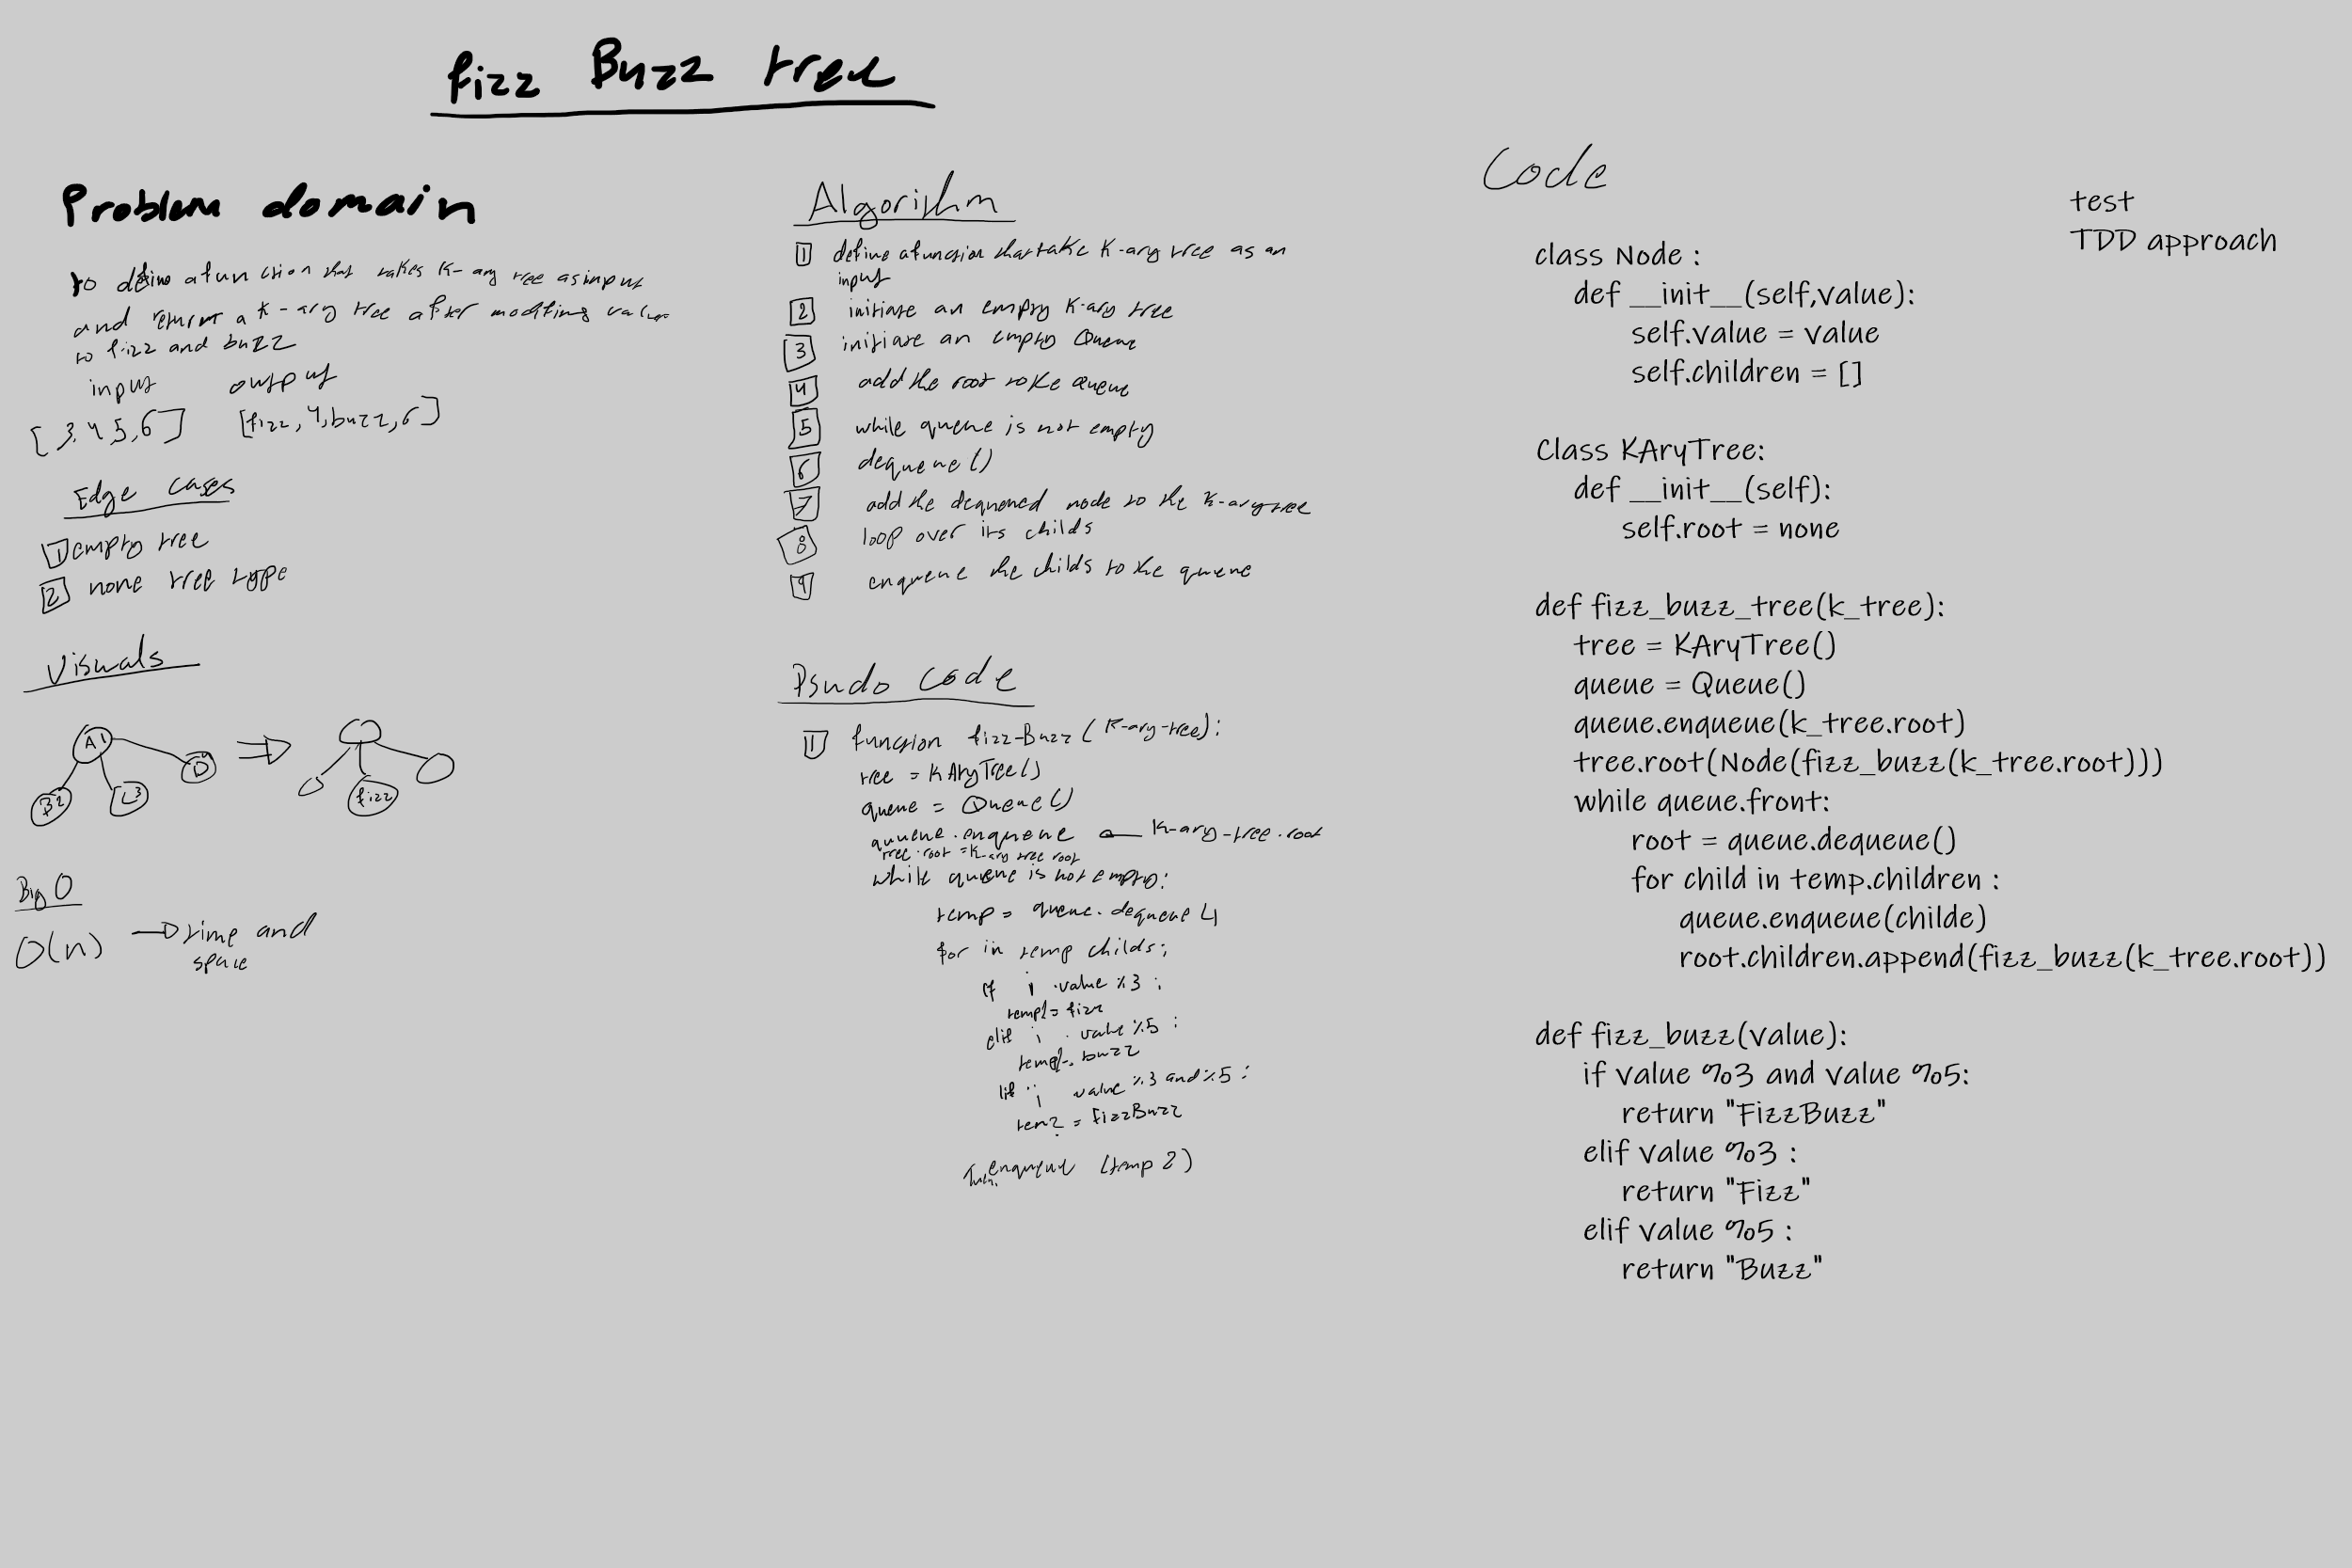 fizz Buzz tree
Problem domain
to define a function that takes K-ary tree as input
and return a K-ary tree after modifing values
to fizz and buzz
input output
[3,4,5,6] [fizz,4,buzz,6]
Edge cases
1 empty tree
2 none tree type
Visuals
A1
B2
C3
D4
fizz
Big O
O(n) → time and
space
Algorithm
1 define a function that take K-ary tree as an
input
2 initiate an empty K-ary tree
3 initiate an empty Queue
4 add the root to the queue
5 while queue is not empty
6 dequeue()
7 add the dequeued node to the K-ary tree
8 loop over its childs
9 enqueue the childs to the queue
Psudo code
1 function fizz-Buzz (K-ary-tree):
tree = KAryTree()
queue = Queue()
queue.enqueue ← K-ary-tree.root
tree.root = K-ary tree root
while queue is not empty:
temp = queue.dequeue
for in temp childs:
if i .value %3 :
temp2 = fizz
elif i . value %5 :
buzz
i value %3 and %5 :
= FizzBuzz
enqueue (temp 2)
Code
test
TDD approach
class Node :
def __init__(self,value):
self.value = value
self.children = []
Class KAryTree:
def __init__(self):
self.root = none
def fizz_buzz_tree(k_tree):
tree = KAryTree()
queue = Queue()
queue.enqueue(k_tree.root)
tree.root(Node(fizz_buzz(k_tree.root)))
while queue.front:
root = queue.dequeue()
for child in temp.children :
queue.enqueue(childe)
root.children.append(fizz_buzz(k_tree.root))
def fizz_buzz(value):
if value %3 and value %5:
return "FizzBuzz"
elif value %3 :
return "Fizz"
elif value %5 :
return "Buzz"